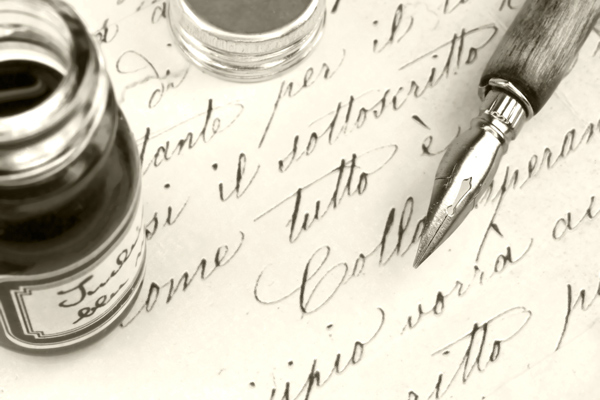 di
tante per il
si il sottoscritto
ome tutto è
Coll speran
ipio vorrà
ritto